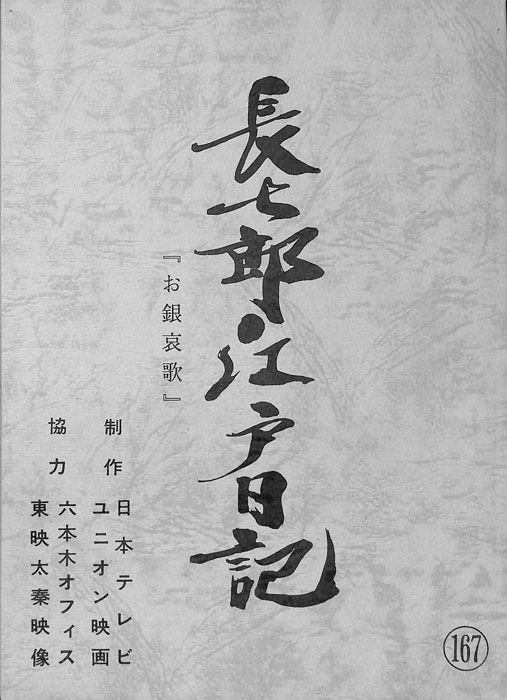 長七郎江戸日記
『お銀哀歌』
制作
日本テレビ
ユニオン映画
協力
六本木オフィス
東映太秦映像
167